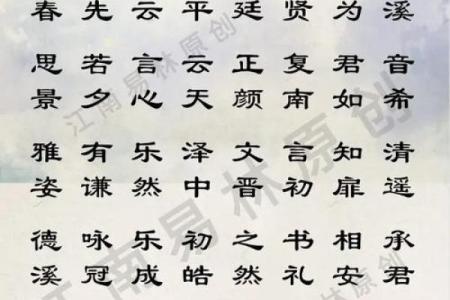 春先云平廷贤为溪
思若言云正复君音
景夕心天颜南如希
雅有乐泽文言知清
姿谦然中晋初扉遥
德咏乐初之书相承
溪冠成皓然礼安君
江南易林原创
江南易林原创
江南易林原创